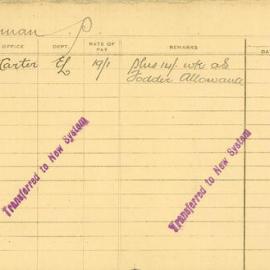 man P.
OFFICE DEPT. RATE OF PAY REMARKS DA
Carter EL 19/1 plus 14/- wk as
Fodder Allowance
Transferred to New System
Transferred to New System